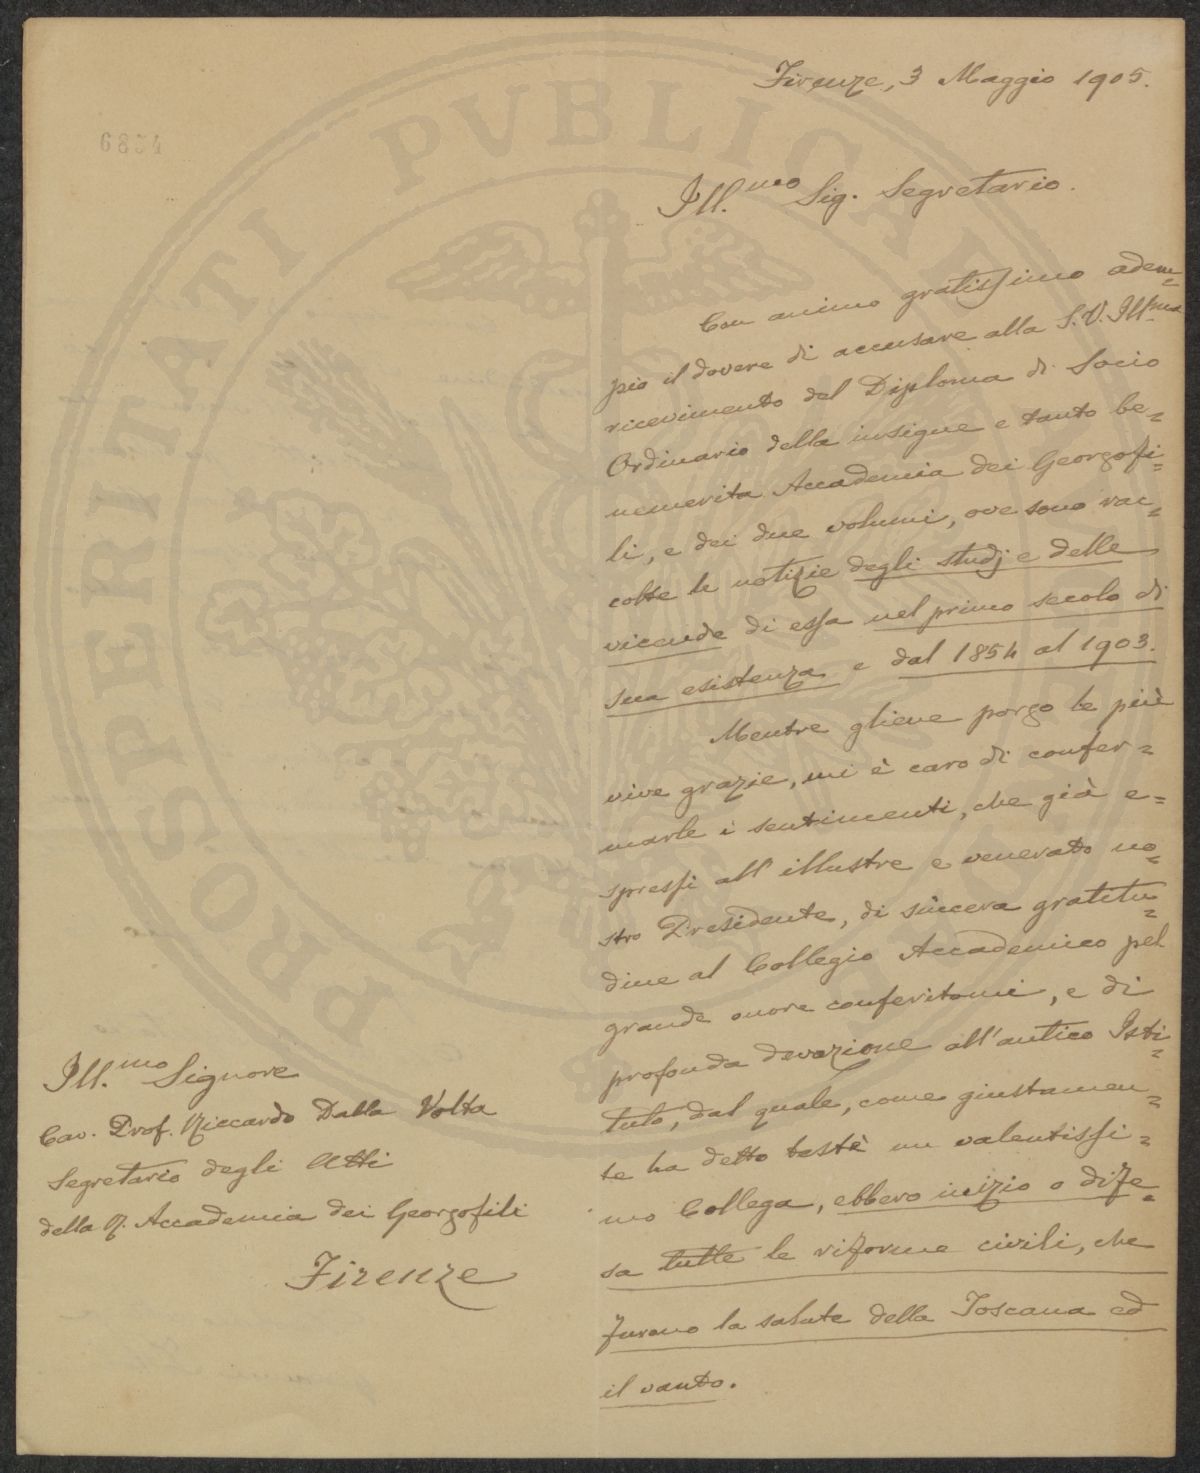 Firenze, 3 Maggio 1905.
6834
Ill.mo Sig. Segretario.
Con animo gratissimo adem=
pio il dovere di accusare alla S. V. Ill.ma
ricevimento del Diploma di Socio
Ordinario della insigne e tanto be=
nemerita Accademia dei Georgofi=
li, e dei due volumi, ove sono rac=
colte le notizie degli studj e delle
vicende di essa nel primo secolo di
sua esistenza e dal 1854 al 1903.
Mentre gliene porgo le più
vive grazie, mi è caro di confer=
marle i sentimenti, che già e=
spressi all'illustre e venerato no=
stro Presidente, di sincera gratitu=
dine al Collegio Accademico pel
grande onore conferitomi, e di
profonda devozione all'antico Isti=
tuto, dal quale, come giustamen=
te ha detto testè un valentissi=
mo Collega, ebbero inizio o dife=
sa tutte le riforme civili, che
furono la salute della Toscana ed
il vanto.
Ill.mo Signore
Cav. Prof. Riccardo Dalla Volta
Segretario degli Atti
della R. Accademia dei Georgofili
Firenze
PROSPERITATI PVBLICAE